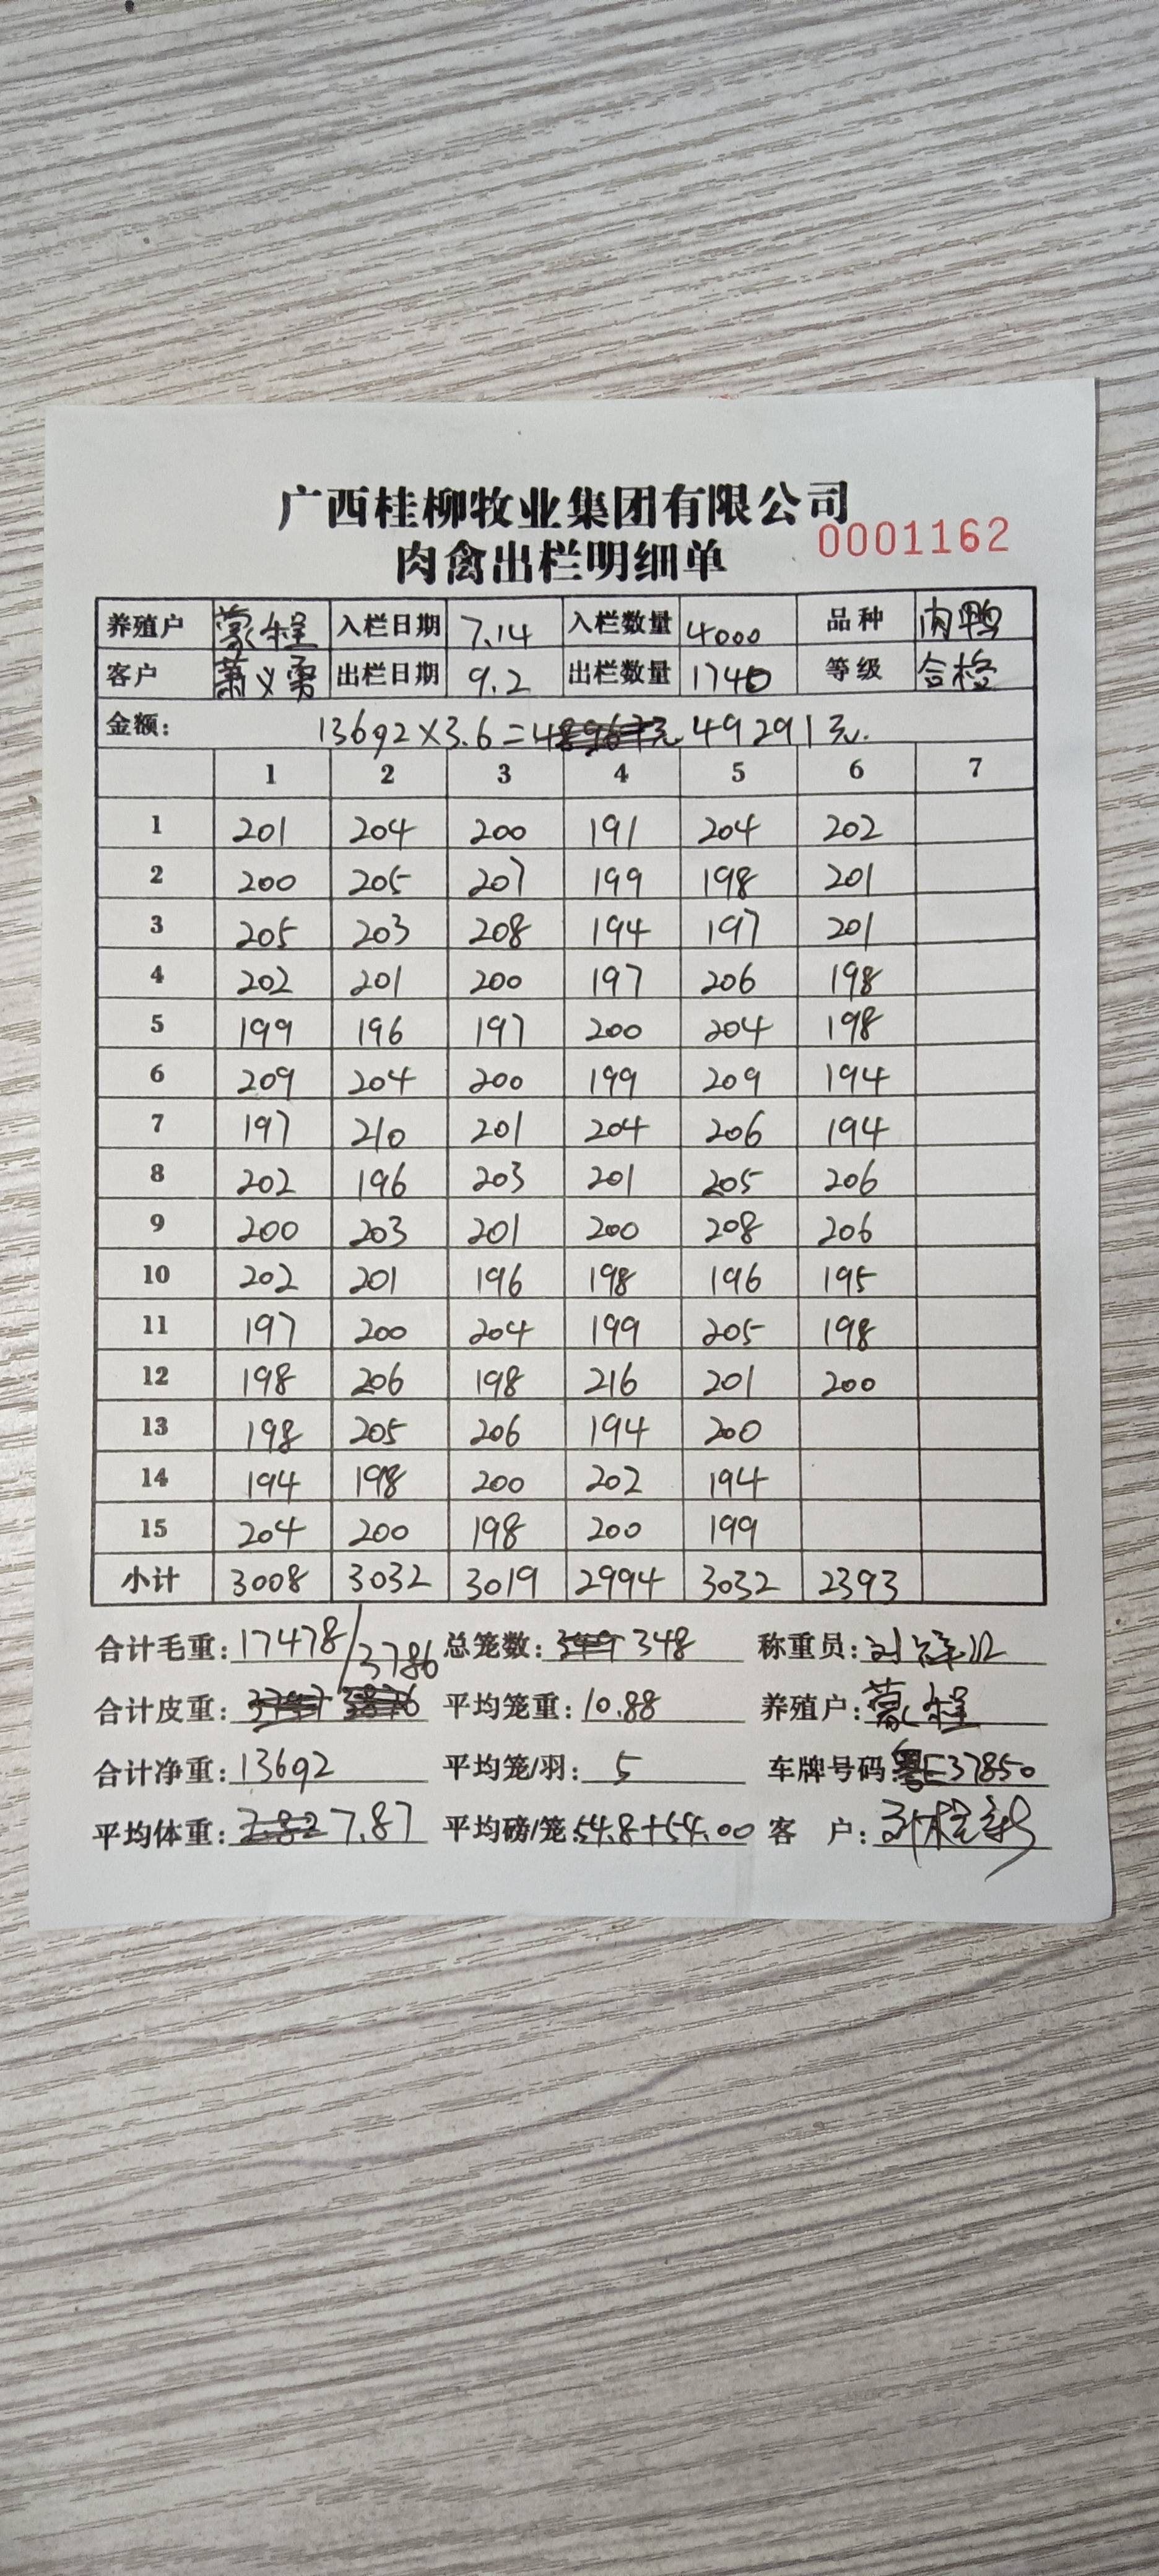 广西桂柳牧业集团有限公司
0001162
肉禽出栏明细单
养殖户 蒙程 入栏日期 7.14 入栏数量 4000 品种 肉鸭
客户 萧义勇 出栏日期 9.2 出栏数量 1740 等级 合格
金额: 13692×3.6= 49291元.
1 2 3 4 5 6 7
1 201 204 200 191 204 202
2 200 205 207 199 198 201
3 205 203 208 194 197 201
4 202 201 200 197 206 198
5 199 196 197 200 204 198
6 209 204 200 199 209 194
7 197 210 201 204 206 194
8 202 196 203 201 205 206
9 200 203 201 200 208 206
10 202 201 196 198 196 195
11 197 200 204 199 205 198
12 198 206 198 216 201 200
13 198 205 206 194 200
14 194 198 200 202 194
15 204 200 198 200 199
小计 3008 3032 3019 2994 3032 2393
合计毛重: 17478/3786 总笼数: 348 称重员:
合计皮重: 平均笼重: 10.88 养殖户: 蒙程
合计净重: 13692 平均笼/羽: 5 车牌号码 粤E37850
平均体重: 7.87 平均磅/笼: 54.8+54.00 客 户: